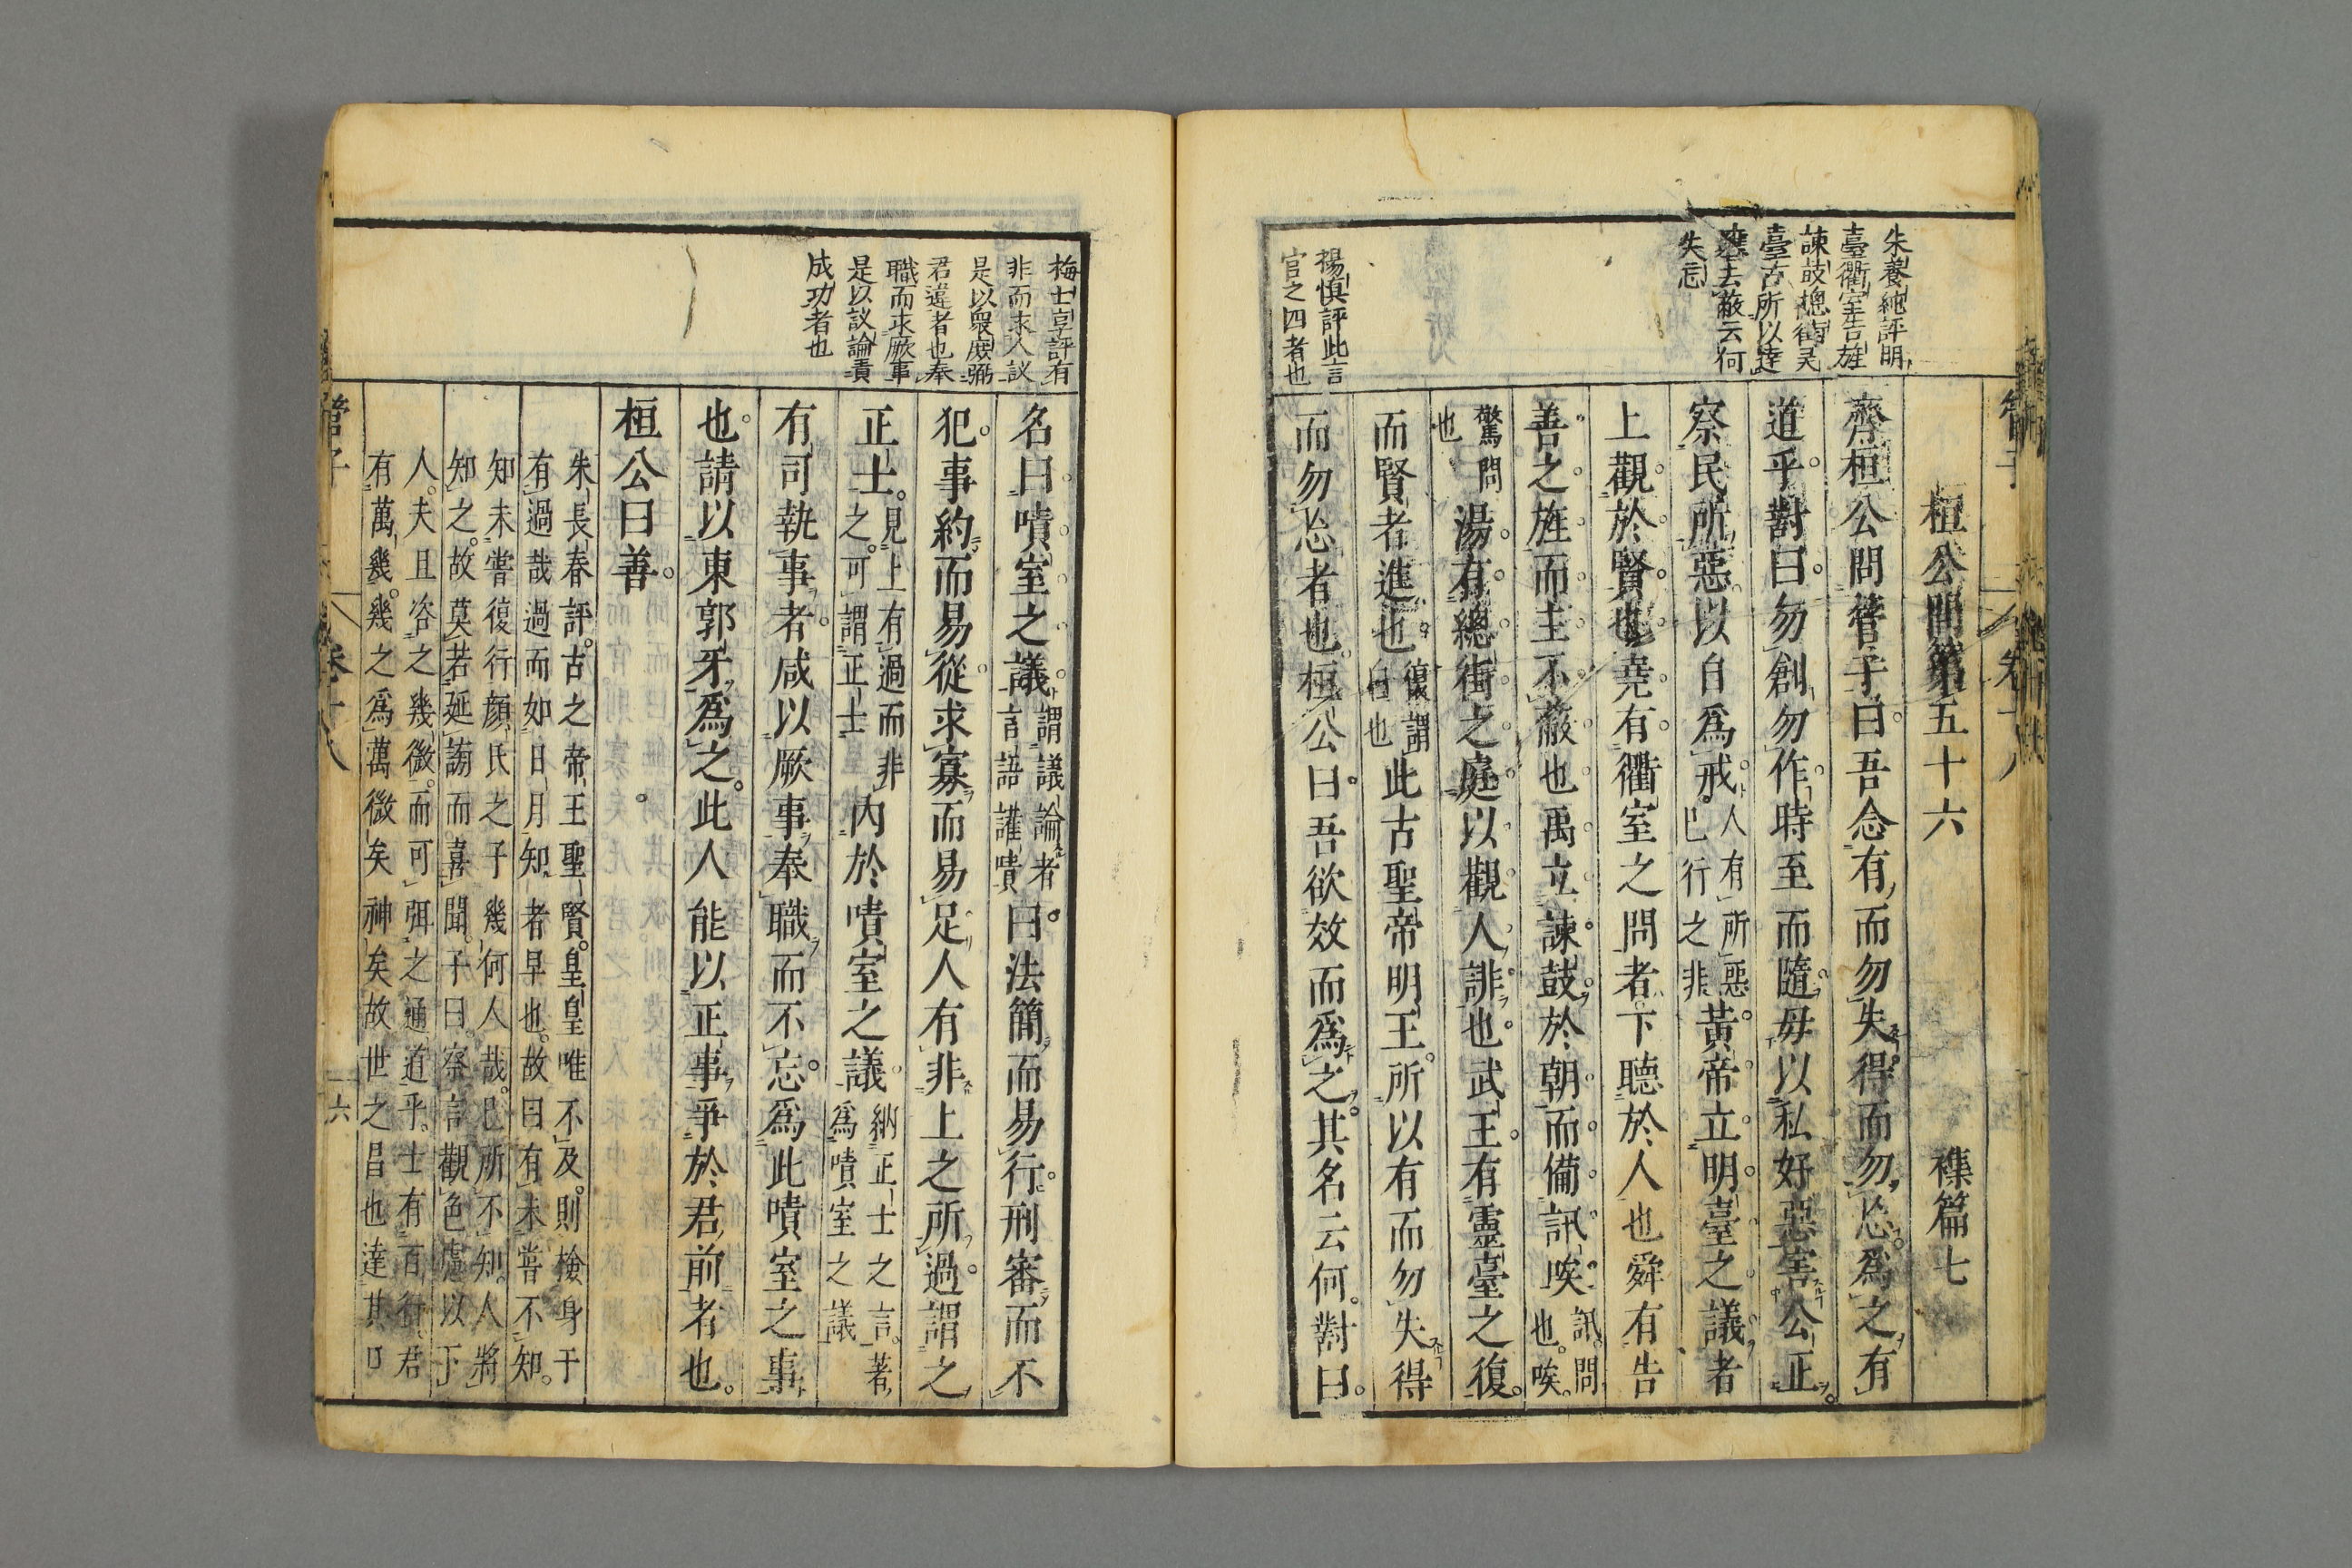 朱養純評明
臺衢室告旌
諫鼓總街灵
臺古所以達
聰去蔽云何
失忘
楊慎評此言
官之四者也
桓公問第五十六 襍篇七
齊桓公問管子曰吾念有而勿失得而勿忘爲之有
道乎對曰勿創勿作時至而隨毋以私好惡害公正
察民所惡以自爲戒人有所惡己行之非黃帝立明臺之議者
上觀於賢也堯有衢室之問者下聽於人也舜有告
善之旌而主不蔽也禹立諫鼓於朝而備訊唉訊問也唉
驚問也湯有總街之庭以觀人誹也武王有靈臺之復
而賢者進也復謂白也此古聖帝明王所以有而勿失得
而勿忘者也桓公曰吾欲效而爲之其名云何對曰
梅士享評有
非而求人議
是以衆庶弼
君違者也奉
職而求厥事
是以議論責
成功者也
名曰嘖室之議謂議論者言語讙嘖曰法簡而易行刑審而不
犯事約而易從求寡而易足人有非上之所過謂之
正士見上有過而非之可謂正士內於嘖室之議納正士之言著爲嘖室之議
有司執事者咸以厥事奉職而不忘爲此嘖室之事
也請以東郭牙爲之此人能以正事爭於君前者也
桓公曰善
朱長春評古之帝王聖賢皇皇唯不及則檢身于
有過哉過而如日月知者早也故曰有未嘗不知
知未嘗復行顏氏之子幾何人哉己所不知人將
知之故莫若延謗而喜聞子曰察言觀色慮以下
人夫且咨之幾微而可弭之通道乎士有百行君
有萬幾幾之爲萬微矣神矣故世之昌也達其
管子 卷十八 六